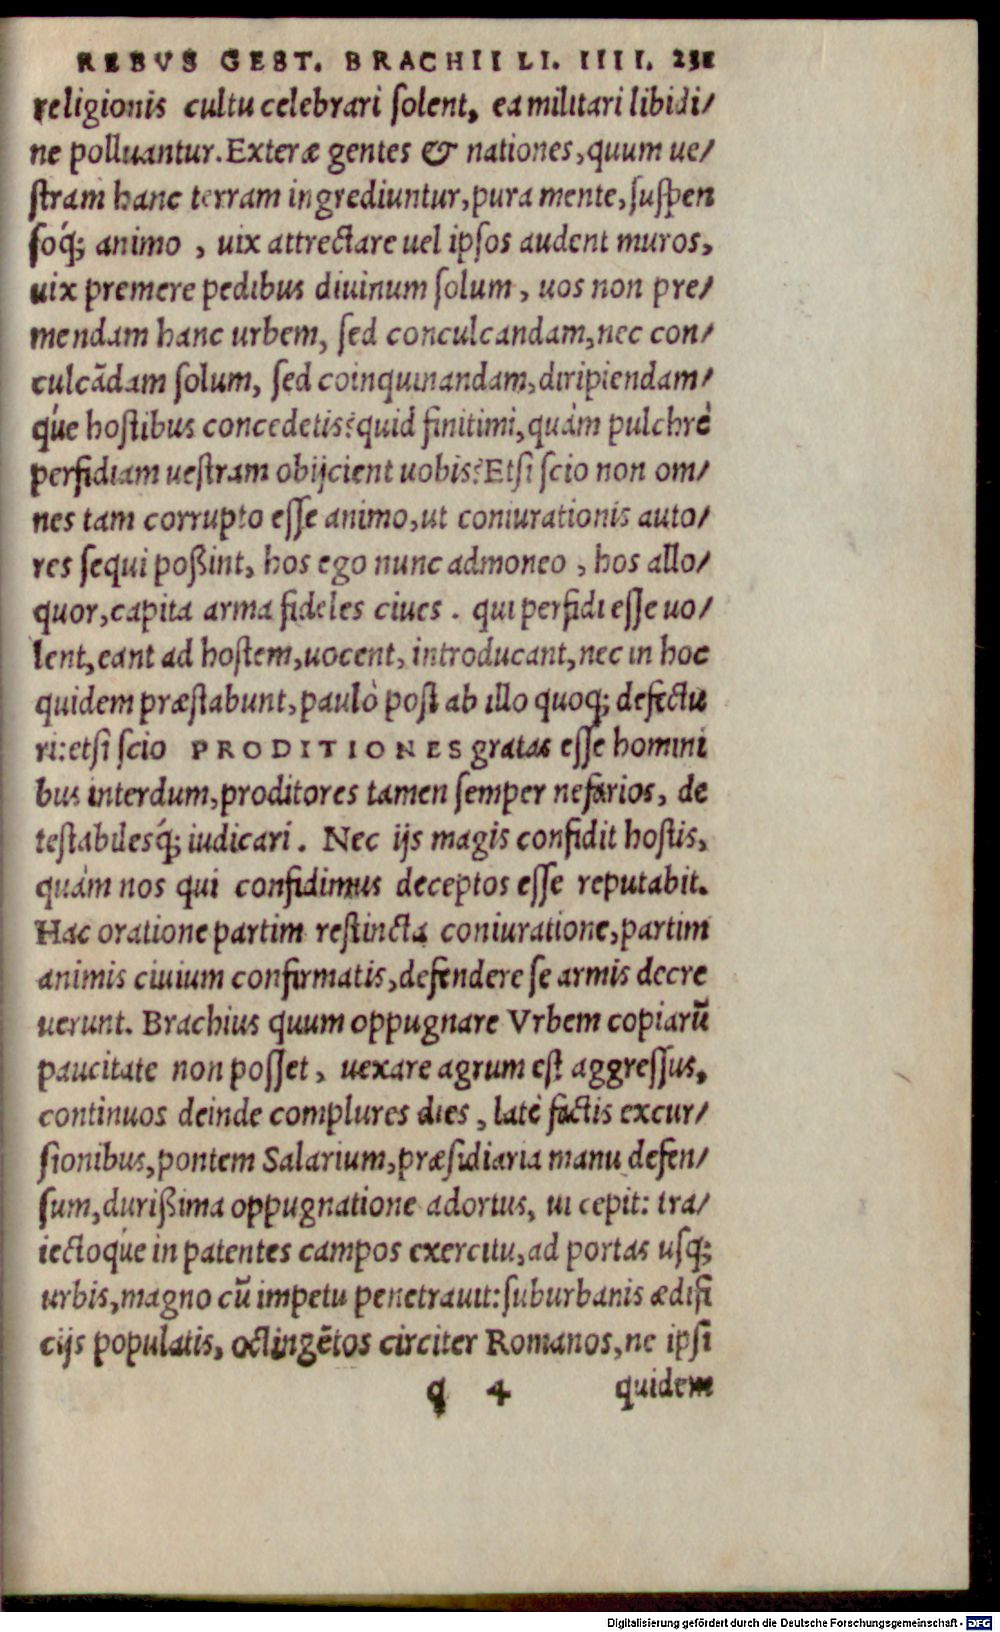 REBVS GEST. BRACHII LI. IIII. 231
religionis cultu celebrari ſolent, ea militari libidi/
ne polluantur. Exteræ gentes & nationes, quum ue/
ſtram hanc terram ingrediuntur, pura mente, ſuſpen
ſoq́; animo , uix attrectare uel ipſos audent muros,
uix premere pedibus diuinum ſolum , uos non pre/
mendam hanc urbem, ſed conculcandam, nec con/
culcãdam ſolum, ſed coinquinandam, diripiendam/
q́ue hoſtibus concedetis? quid finitimi, quàm pulchrè
perfidiam ueſtram obijcient uobis? Etſi ſcio non om/
nes tam corrupto eſſe animo, ut coniurationis auto/
res ſequi poßint, hos ego nunc admoneo , hos allo/
quor, capita arma fideles ciues . qui perfidi eſſe uo/
lent, eant ad hoſtem, uocent, introducant, nec in hoc
quidem præſtabunt, paulò poſt ab illo quoq; defectu
ri: etſi ſcio PRODITIONES gratas eſſe homini
bus interdum, proditores tamen ſemper nefarios, de
teſtabilesq́; iudicari . Nec ijs magis confidit hoſtis,
quàm nos qui confidimus deceptos eſſe reputabit.
Hac oratione partim reſtincta coniuratione, partim
animis ciuium confirmatis, defendere ſe armis decre
uerunt. Brachius quum oppugnare Vrbem copiarũ
paucitate non poſſet , uexare agrum eſt aggreſſus,
continuos deinde complures dies , latè factis excur/
ſionibus, pontem Salarium, præſidiaria manu defen/
ſum, durißima oppugnatione adortus, ui cepit: tra/
iectoq́ue in patentes campos exercitu, ad portas uſq;
urbis, magno cũ impetu penetrauit: ſuburbanis ædifi
cijs populatis, octingẽtos circiter Romanos, ne ipſi
q 4 quidem
Digitalisierung gefördert durch die Deutsche Forschungsgemeinschaft - DFG